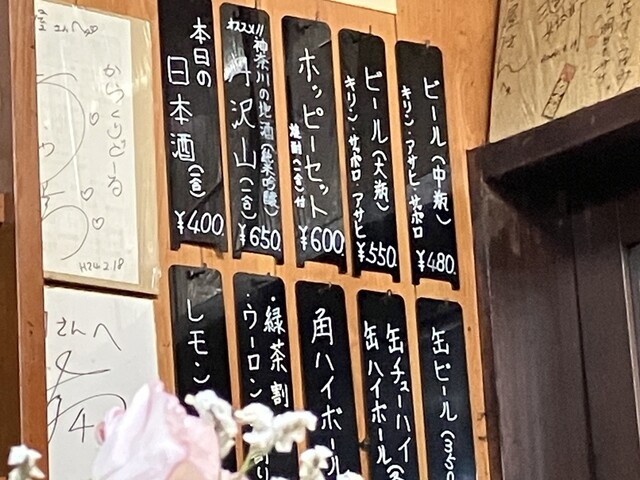 ビール(中瓶)
キリン・アサヒ・サッポロ
¥480.
ビール(大瓶)
キリン・サッポロ・アサヒ
¥550.
ホッピーセット
焼酎(一合)付
¥600.
オススメ!!
神奈川の地酒(純米吟醸)
丹沢山(一合)
¥650.
本日の
日本酒(一合)
¥400.
缶ビール(350
缶チューハイ
缶ハイボール(各
角ハイボール
・緑茶割
・ウーロン
レモン
からくりどーる
H24.2.18
さんへ